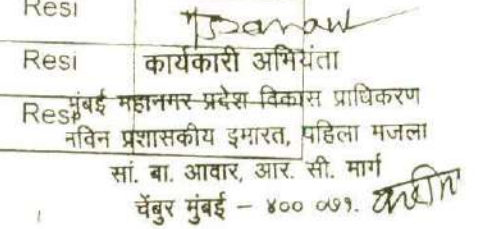 Resi
Resi
कार्यकारी अभियंता
Resi
मुंबई महानगर प्रदेश विकास प्राधिकरण
नविन प्रशासकीय इमारत, पहिला मजला
सां. बा. आवार, आर. सी. मार्ग
चेंबुर मुंबई – ४०० ०७१.